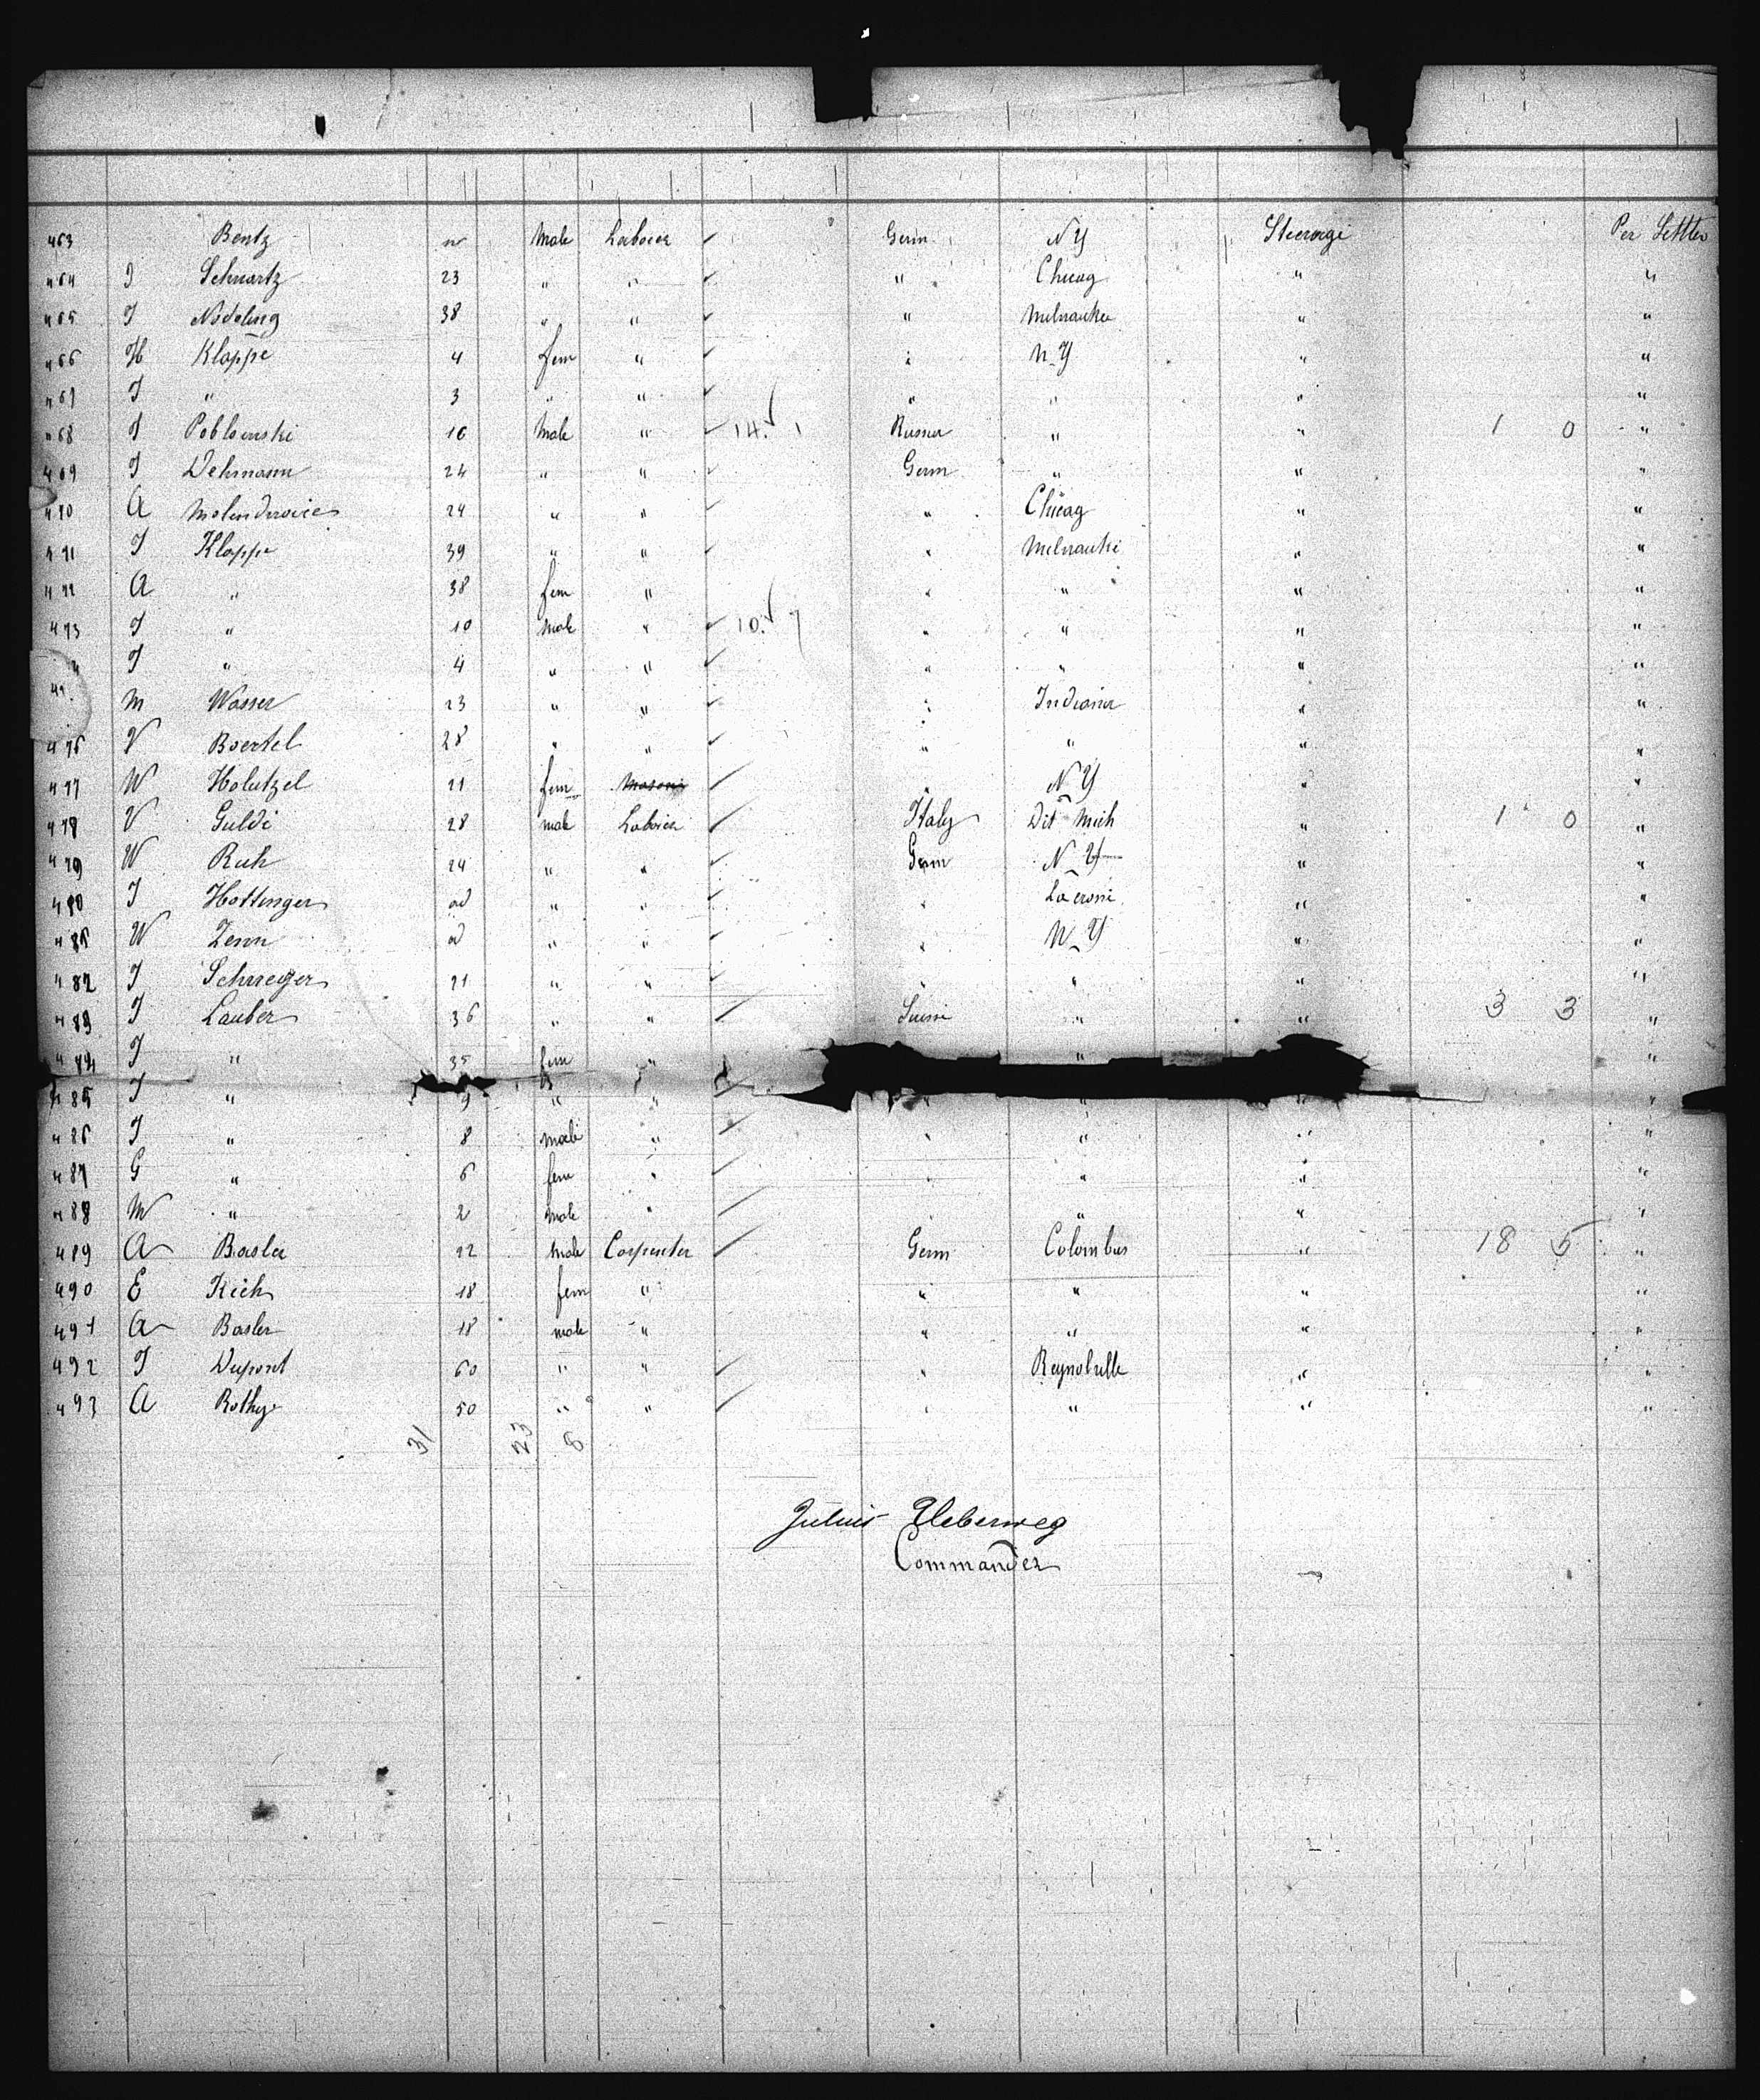 463 Bentz Male Laborer ✓ Germ N Y Steerage Per Settler
464 J Schwartz 23 " " ✓ " Chicag " "
465 J 38 " " ✓ " Milwauke " "
466 H Klappe 4 fem " ✓ " N Y " "
467 J " 3 " " ✓ " " " "
468 J Poblowski 16 Male " ✓ 14. ✓ 1 Russia " " 1 0 "
469 J Wehmann 24 " " ✓ Germ " " "
470 A 24 " " ✓ " Chicag " "
471 J Klappe 39 " " ✓ " Milwauki " "
472 A " 38 fem " " " " "
473 J " 10 Male " ✓ 10. ✓ 7 " " " "
" J " 4 " " ✓ " " " "
47 M Wasser 23 " " ✓ " Indiana " "
476 V Boertel 28 " " ✓ " " " "
477 W Holutzel 21 fem Masons ✓ " N Y " "
478 V Guldi 28 male Laborer ✓ Italy Det Mich " 1 0 "
479 W Ruh 24 " " ✓ Germ N Y " "
480 J Hottinger ad " " ✓ " Lacrosse " "
481 W Zenn ad " " ✓ " N Y " "
482 J 21 " " ✓ " " " "
483 J Lauber 36 " " ✓ Suisse " " 3 3 "
484 J " 35 fem " ✓ " "
485 J " 9 " " ✓ " " " "
486 J " 8 male " ✓ " " " "
487 G " 6 fem " ✓ " " " "
488 W " 2 male " ✓ " " " "
489 A Basler 22 Male Carpenter ✓ Germ Colombus " 18 5 "
490 E Kich 18 fem " " " " "
491 A Basler 18 male " " " " "
492 J Dupont 60 " " ✓ " " "
493 A 50 " " ✓ " " " "
31 23 8
Julius Ueberweg
Commander